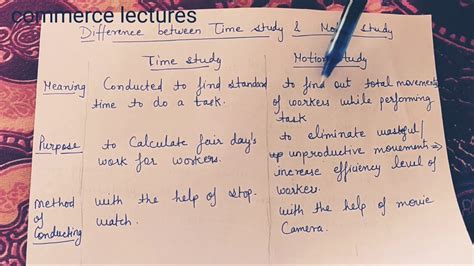 commerce lectures
Difference between Time study & Motion study
Time study
Motion study
Meaning
Conducted to find standard
time to do a task.
to find out total movements
of workers while performing
task
Purpose
to Calculate fair day's
work for workers.
to eliminate wasteful/
unproductive movement &
increase efficiency level of
workers.
Method
of
Conducting
with the help of stop-
watch.
with the help of movie
Camera.